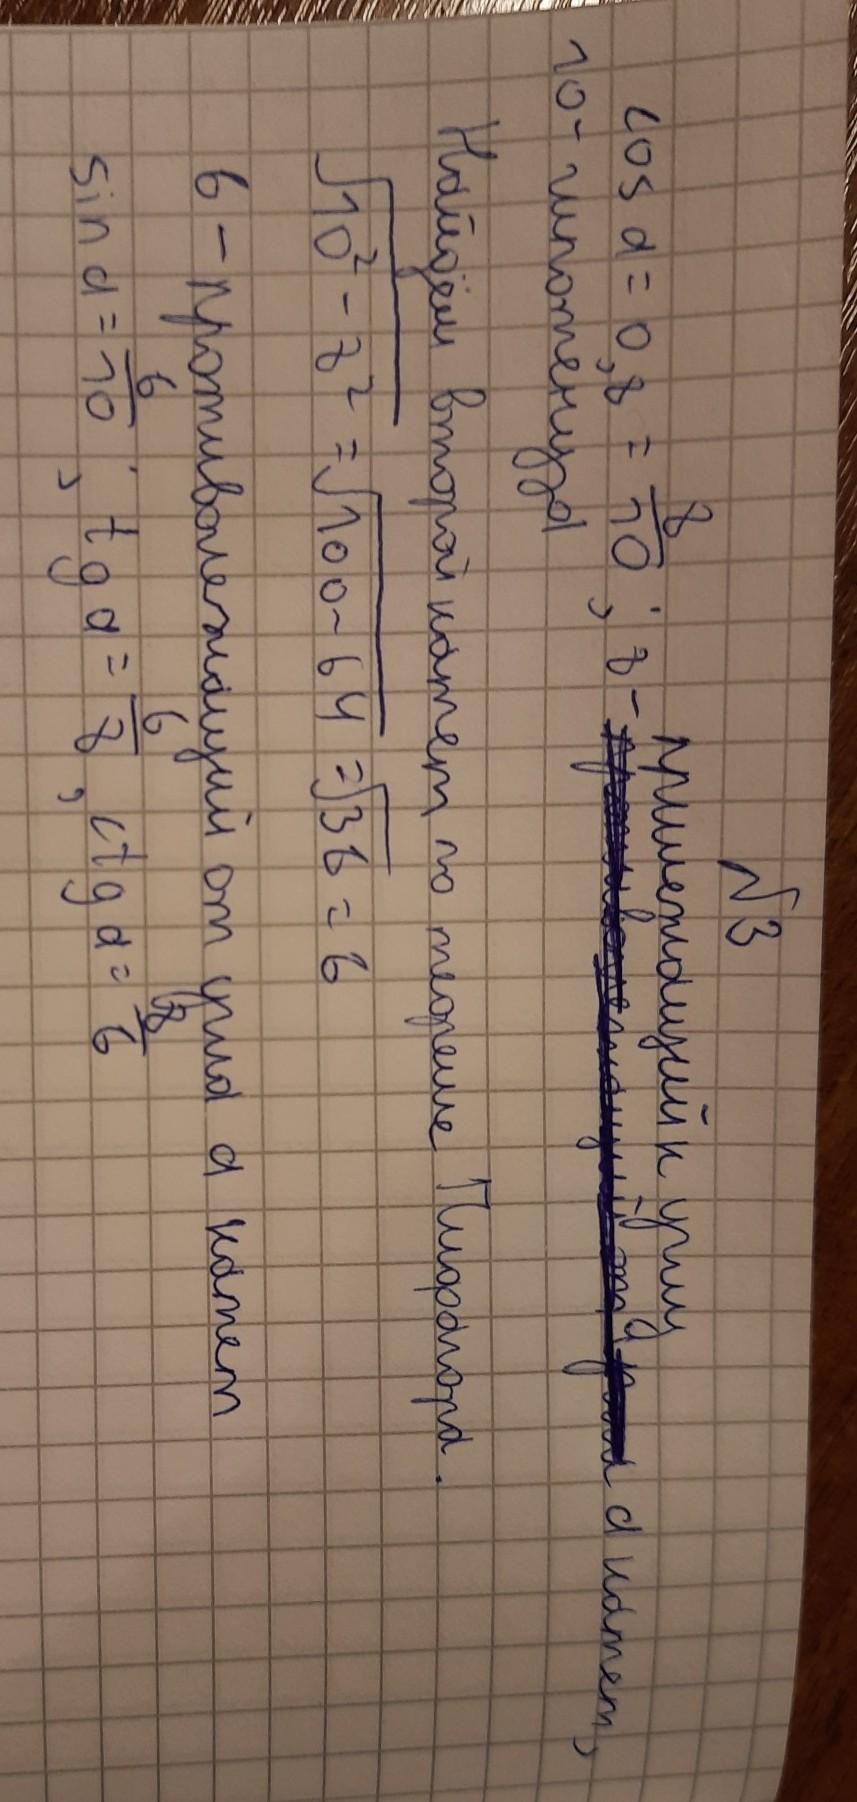 √3
cos α = 0,8 = 8/10; 8 - прилежащий к углу α катет,
10 - гипотенуза
Найдём второй катет по теореме Пифагора.
√10² - 8² = √100 - 64 = √36 = 6
6 - противолежащий от угла α катет
sin α = 6/10; tg α = 6/8, ctg α = 8/6